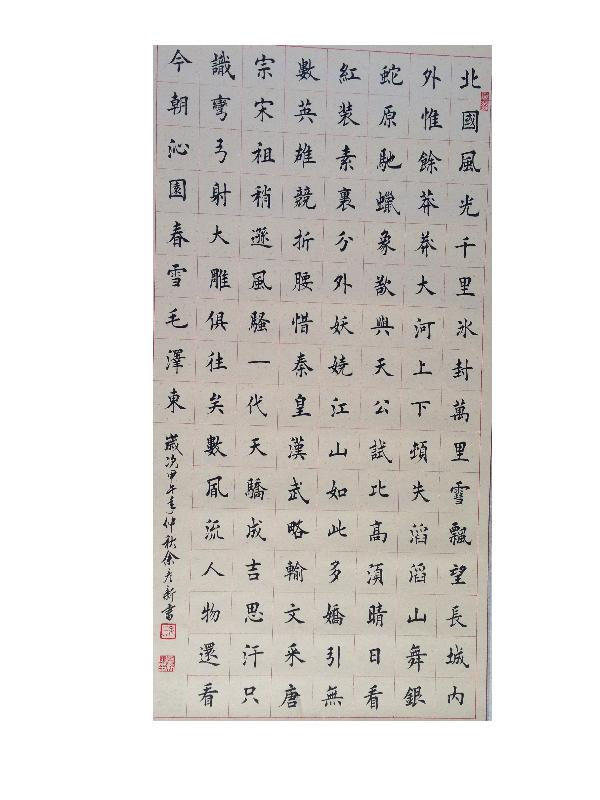 北國風光千里氷封萬里雪飄望長城内
外惟餘莽莽大河上下頓失滔滔山舞銀
蛇原馳蠟象欲與天公試比高須晴日看
紅装素裹分外妖嬈江山如此多嬌引無
數英雄競折腰惜秦皇漢武略輸文采唐
宗宋祖稍遜風騷一代天驕成吉思汗只
識彎弓射大雕俱往矣數風流人物還看
今朝沁園春雪毛澤東
歲次甲午年仲秋余彦新書